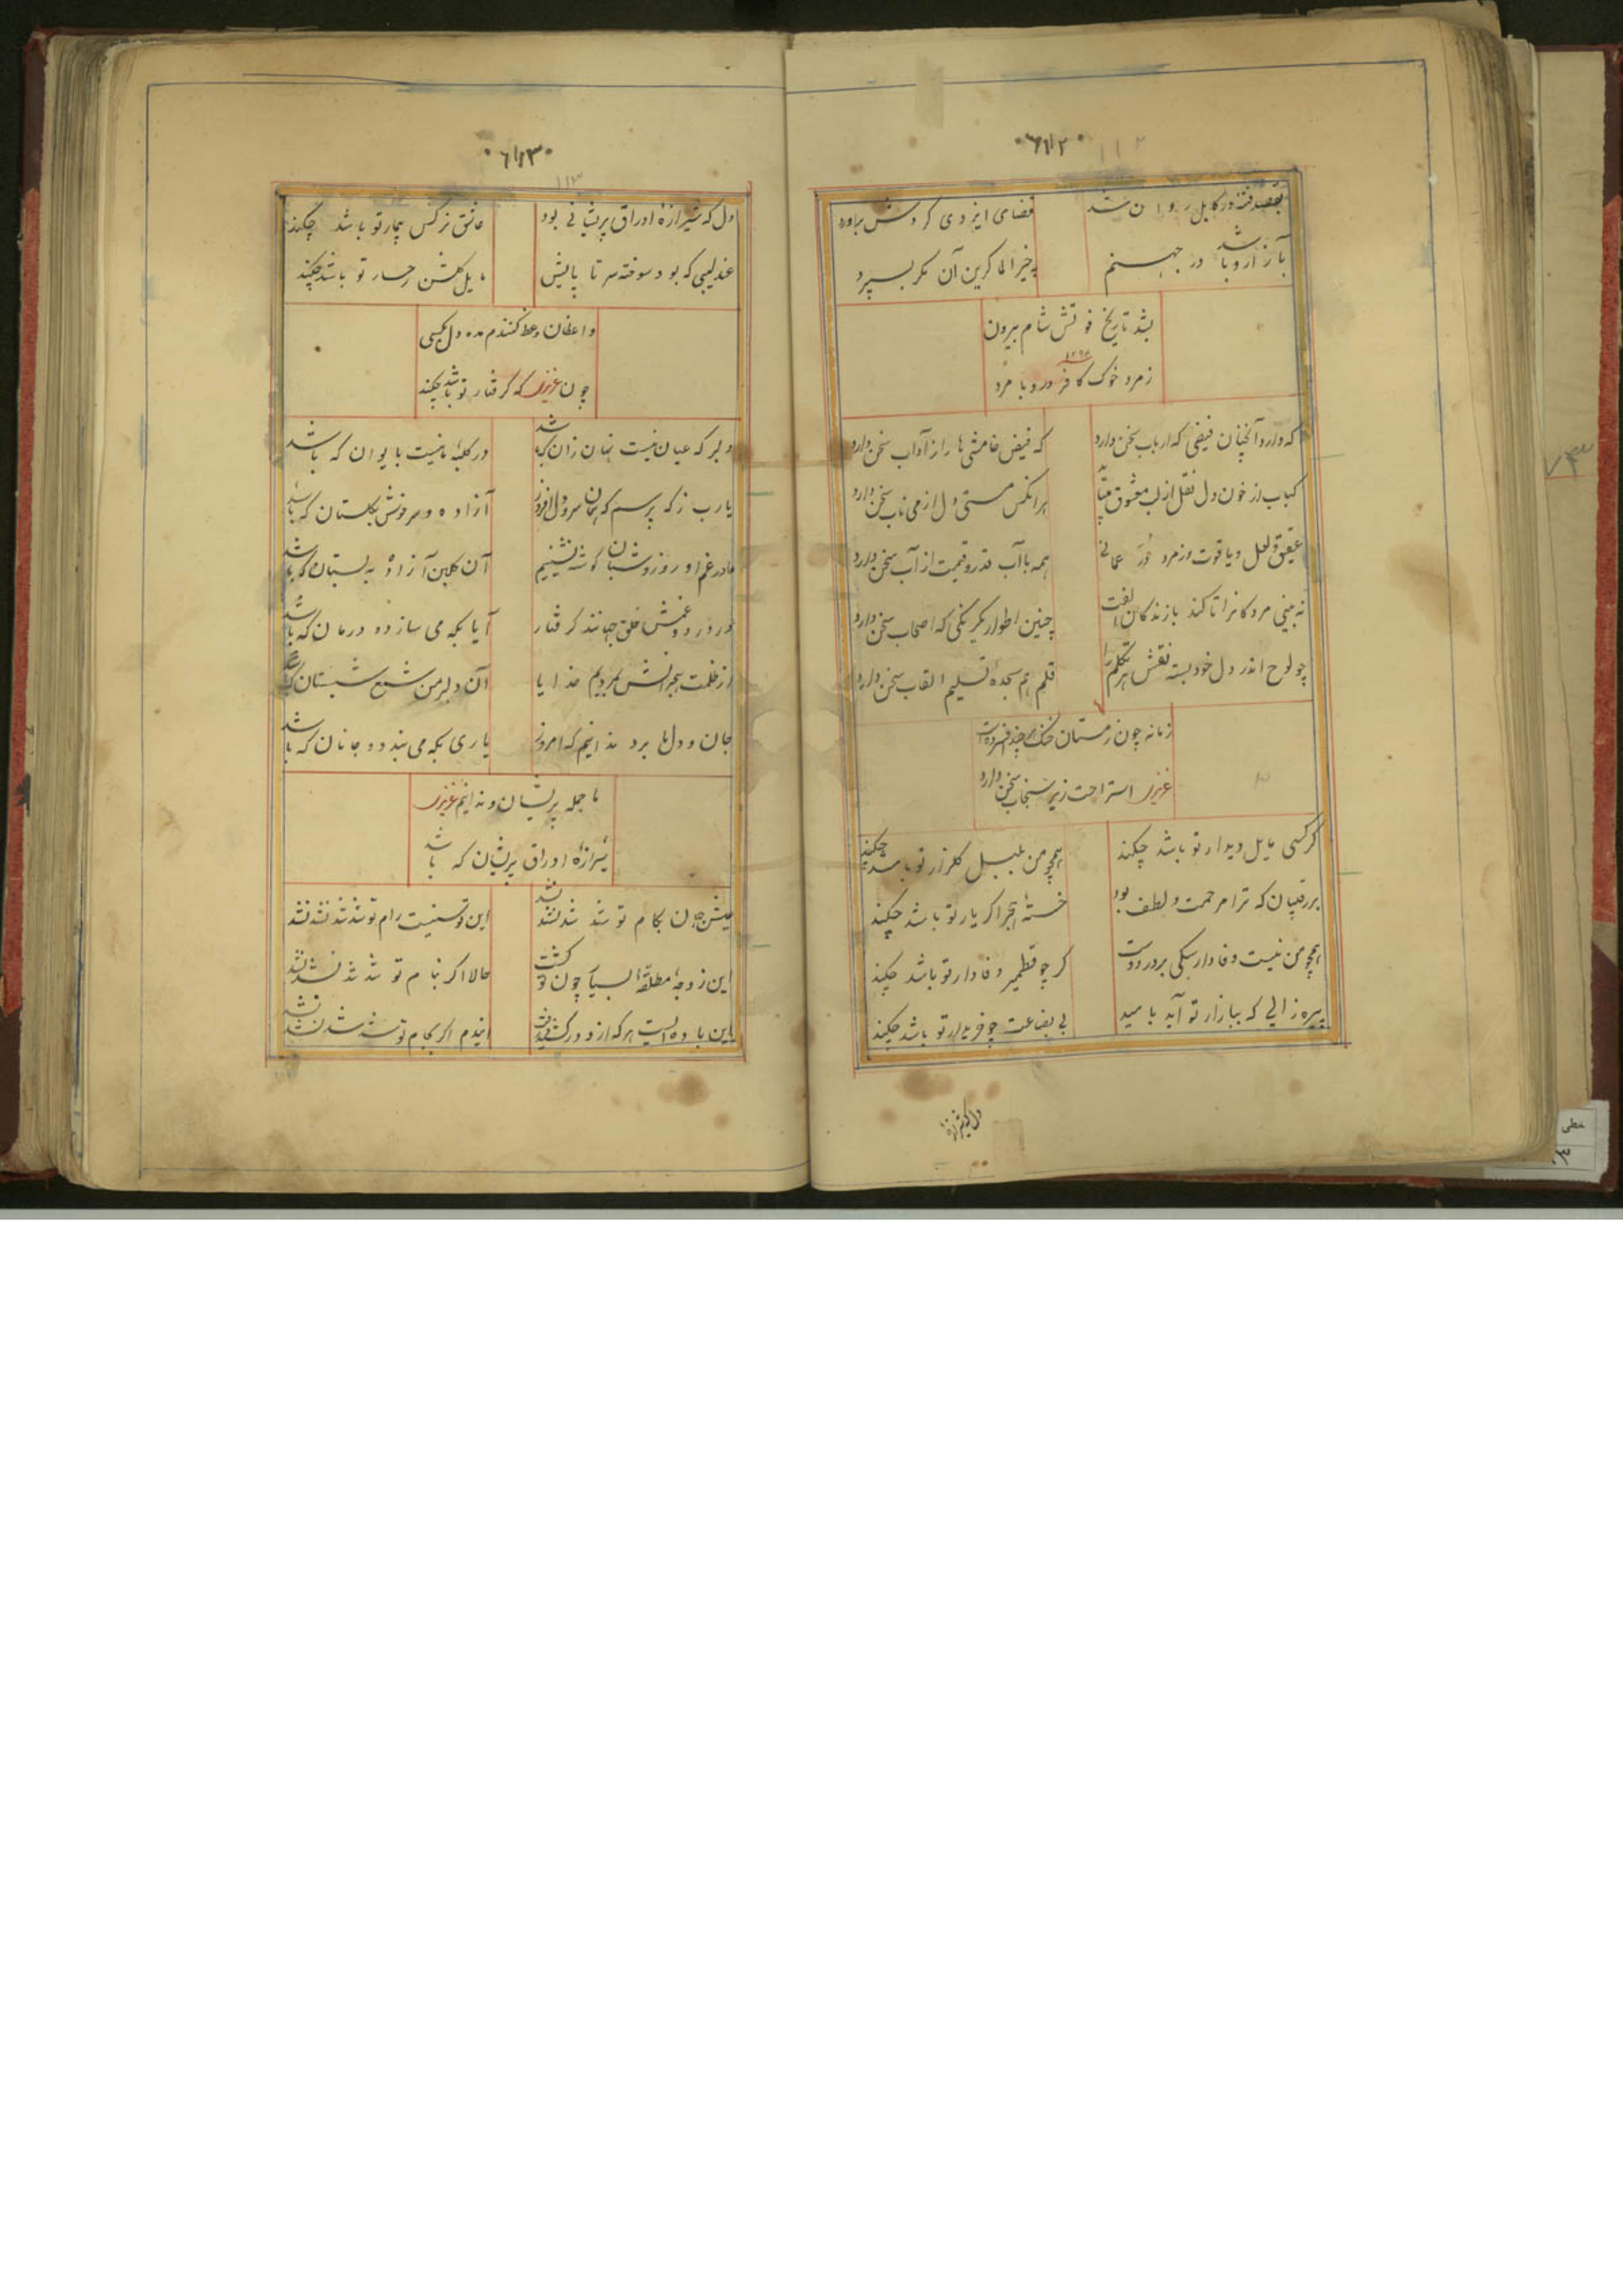 ۶۱۱۲
۱۱۲
بقصد فتنه در کابل روان شد
قضای ایزدی کردش براورد
بازار وبا شد در جهنم
مرد خوک کافر در وبا مرد
بشد تاریخ فوتش شام بیرون
۱۲۹۶
ز مرد خوک کافر در وبا مرد
که دارد آنچنان فیضی که ارباب سخن دارد
که فیض خامشی را از آداب سخن دارد
کباب از خون دل نقل از لب معشوق
هر آنکس مستی دل از می ناب سخن دارد
عقیق و لعل و یاقوت و زمرد در عمانی
همه با آب قدر و قیمت از آب سخن دارد
نه بینی مردگانرا تا کند با زندگان الفت
چنین اطوار یکرنگی که اصحاب سخن دارد
چو لوح اندر دل خود بسته نقش هر تکلم را
قلم هم سجدهٔ تسلیم القاب سخن دارد
زمانه چون زمستان خنک هر چند افسرده است
عزیز استراحت زیر سنجاب سخن دارد
گر کسی مایل دیدار تو باشد چکند
همچو من بلبل گلزار تو باشد چکند
بر رقیبان که ترا مرحمت و لطف بود
خستهٔ هجر اگر یار تو باشد چکند
همچو من نیست وفادار سگی بر در دوست
گر چو قطمیر وفادار تو باشد چکند
پیره زالی که ببازار تو آید با امید
بی بضاعت چو خریدار تو باشد چکند
دل که شیرازه
۶۱۱۳
۱۱۳
دل که شیرازهٔ اوراق پریشانی بود
عاشق نرگس بیمار تو باشد چکند
عندلیبی که بود سوخته سر تا پایش
مایل گلشن رخسار تو باشد چکند
واعظان وعظ کنندم مده دل بکسی
چون عزیز که گرفتار تو باشد چکند
دلبر که عیان نیست نهان زان که باشد
در کلبهٔ ما نیست بایوان که باشد
یا رب ز که پرسم که همان سرو دل افروز
آزاده و سرخوش بگلستان که باشد
ما در غم او روز و شبان گوشه نشینیم
آن گلبن آزاده به بستان که باشد
در درد و غمش خلق جهانند گرفتار
آیا بکه می سازد و درمان که باشد
از ظلمت هجرانش بمردیم خدایا
آن دلبر من شمع شبستان که باشد
جان و دل ما برد ندانیم که امروز
یاری بکه می بندد و جانان که باشد
ما جمله پریشان و ندانیم عزیز
شیرازهٔ اوراق پریشان که باشد
عیش جهان بکام تو شد شد نشد نشد
این توسنیست رام تو شد شد نشد نشد
این زوجهٔ مطلقهٔ بسیار چون تو گشت
حالا اگر بنام تو شد شد نشد نشد
این باده ایست هر که ازو درکشید
ایندم اگر بجام تو شد شد نشد نشد
خطی